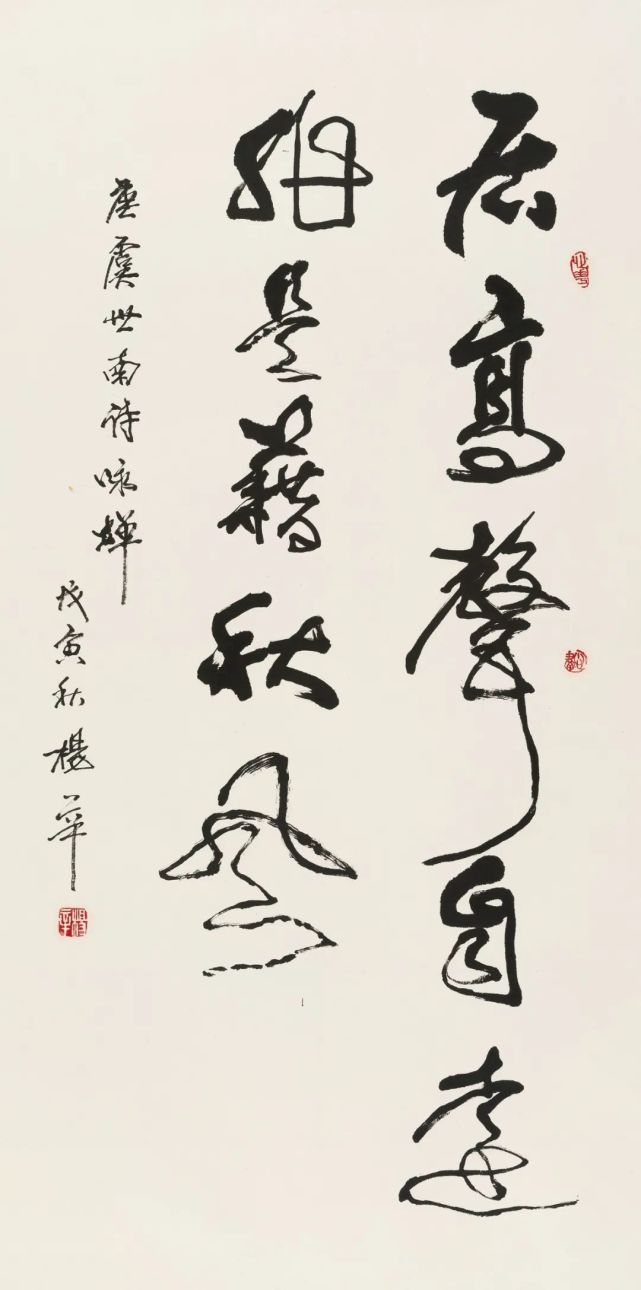 居高聲自遠
非是藉秋風
唐虞世南詩咏蟬
戊寅秋楊華